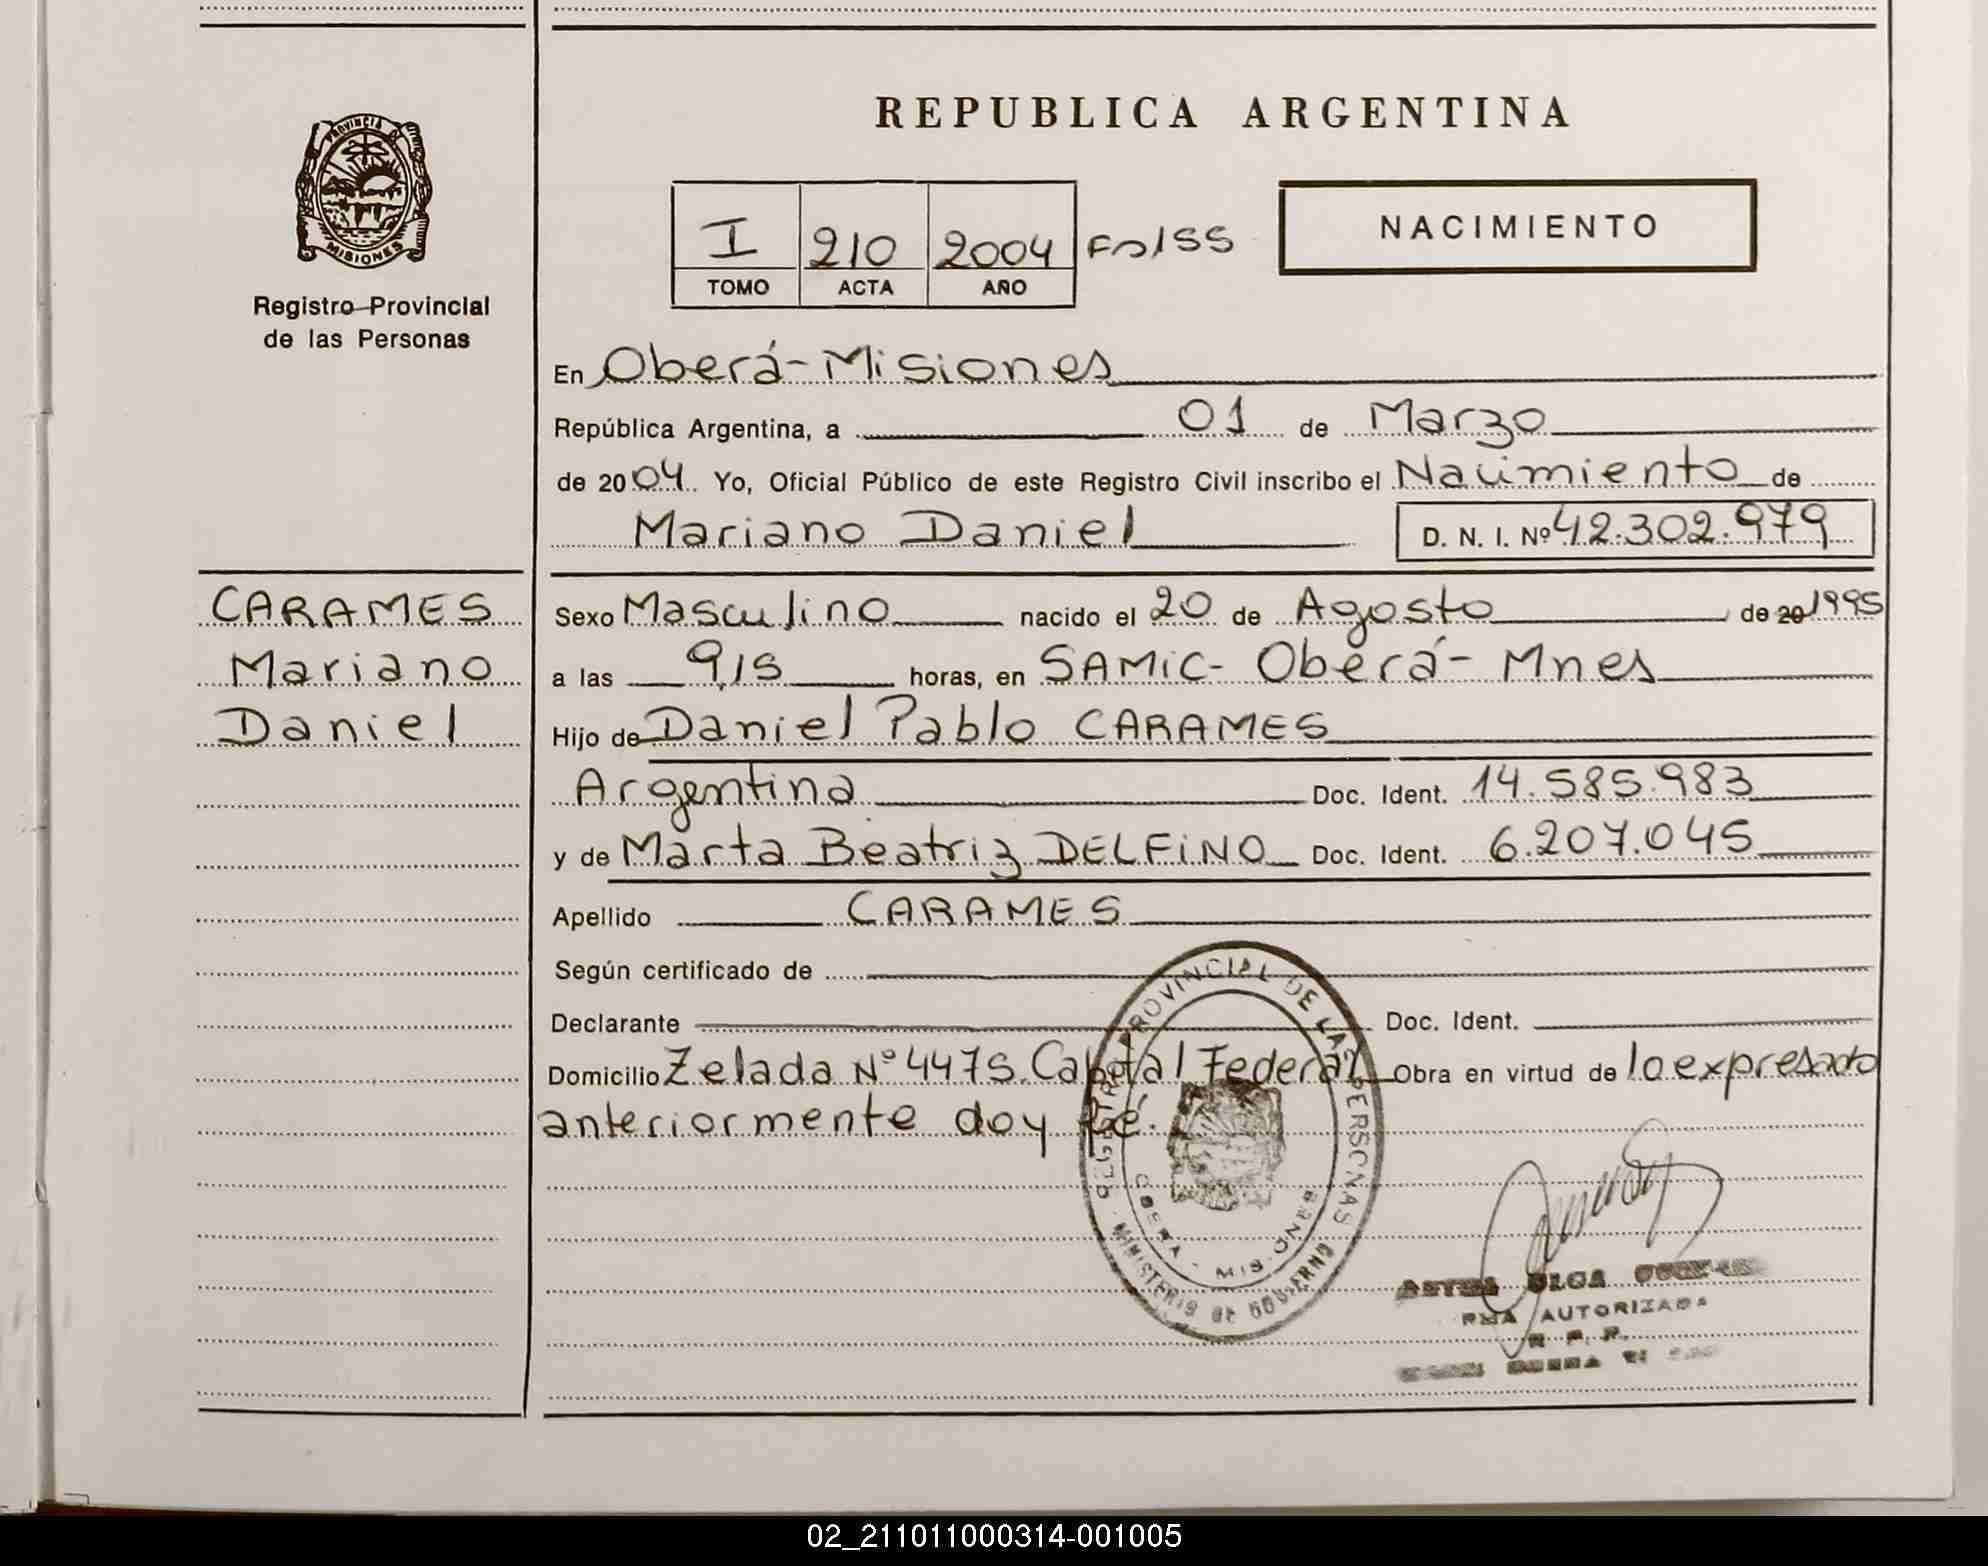 PROVINCIA DE
MISIONES
Registro Provincial
de las Personas
REPUBLICA ARGENTINA
I 210 2004 Fo155
TOMO ACTA AÑO
NACIMIENTO
En Oberá-Misiones
República Argentina, a 01 de Marzo
de 2004. Yo, Oficial Público de este Registro Civil inscribo el Nacimiento de
Mariano Daniel D. N. I. Nº 42.302.979
CARAMES
Mariano
Daniel
Sexo Masculino nacido el 20 de Agosto de 20 1995
a las 9,15 horas, en SAMiC- Oberá- Mnes
Hijo de Daniel Pablo CARAMES
Argentina Doc. Ident. 14.585.983
y de Marta Beatriz DELFiNO Doc. Ident. 6.207.045
Apellido CARAMES
Según certificado de
Declarante Doc. Ident.
Domicilio Zelada Nº 4475. Capital Federal Obra en virtud de lo expresado
anteriormente doy fé.
REGISTRO PROVINCIAL DE LAS PERSONAS
OBERA - MISIONES
MINISTERIO DE GOBIERNO
OLGA
AUTORIZADA
R. P. P.
02_211011000314-001005